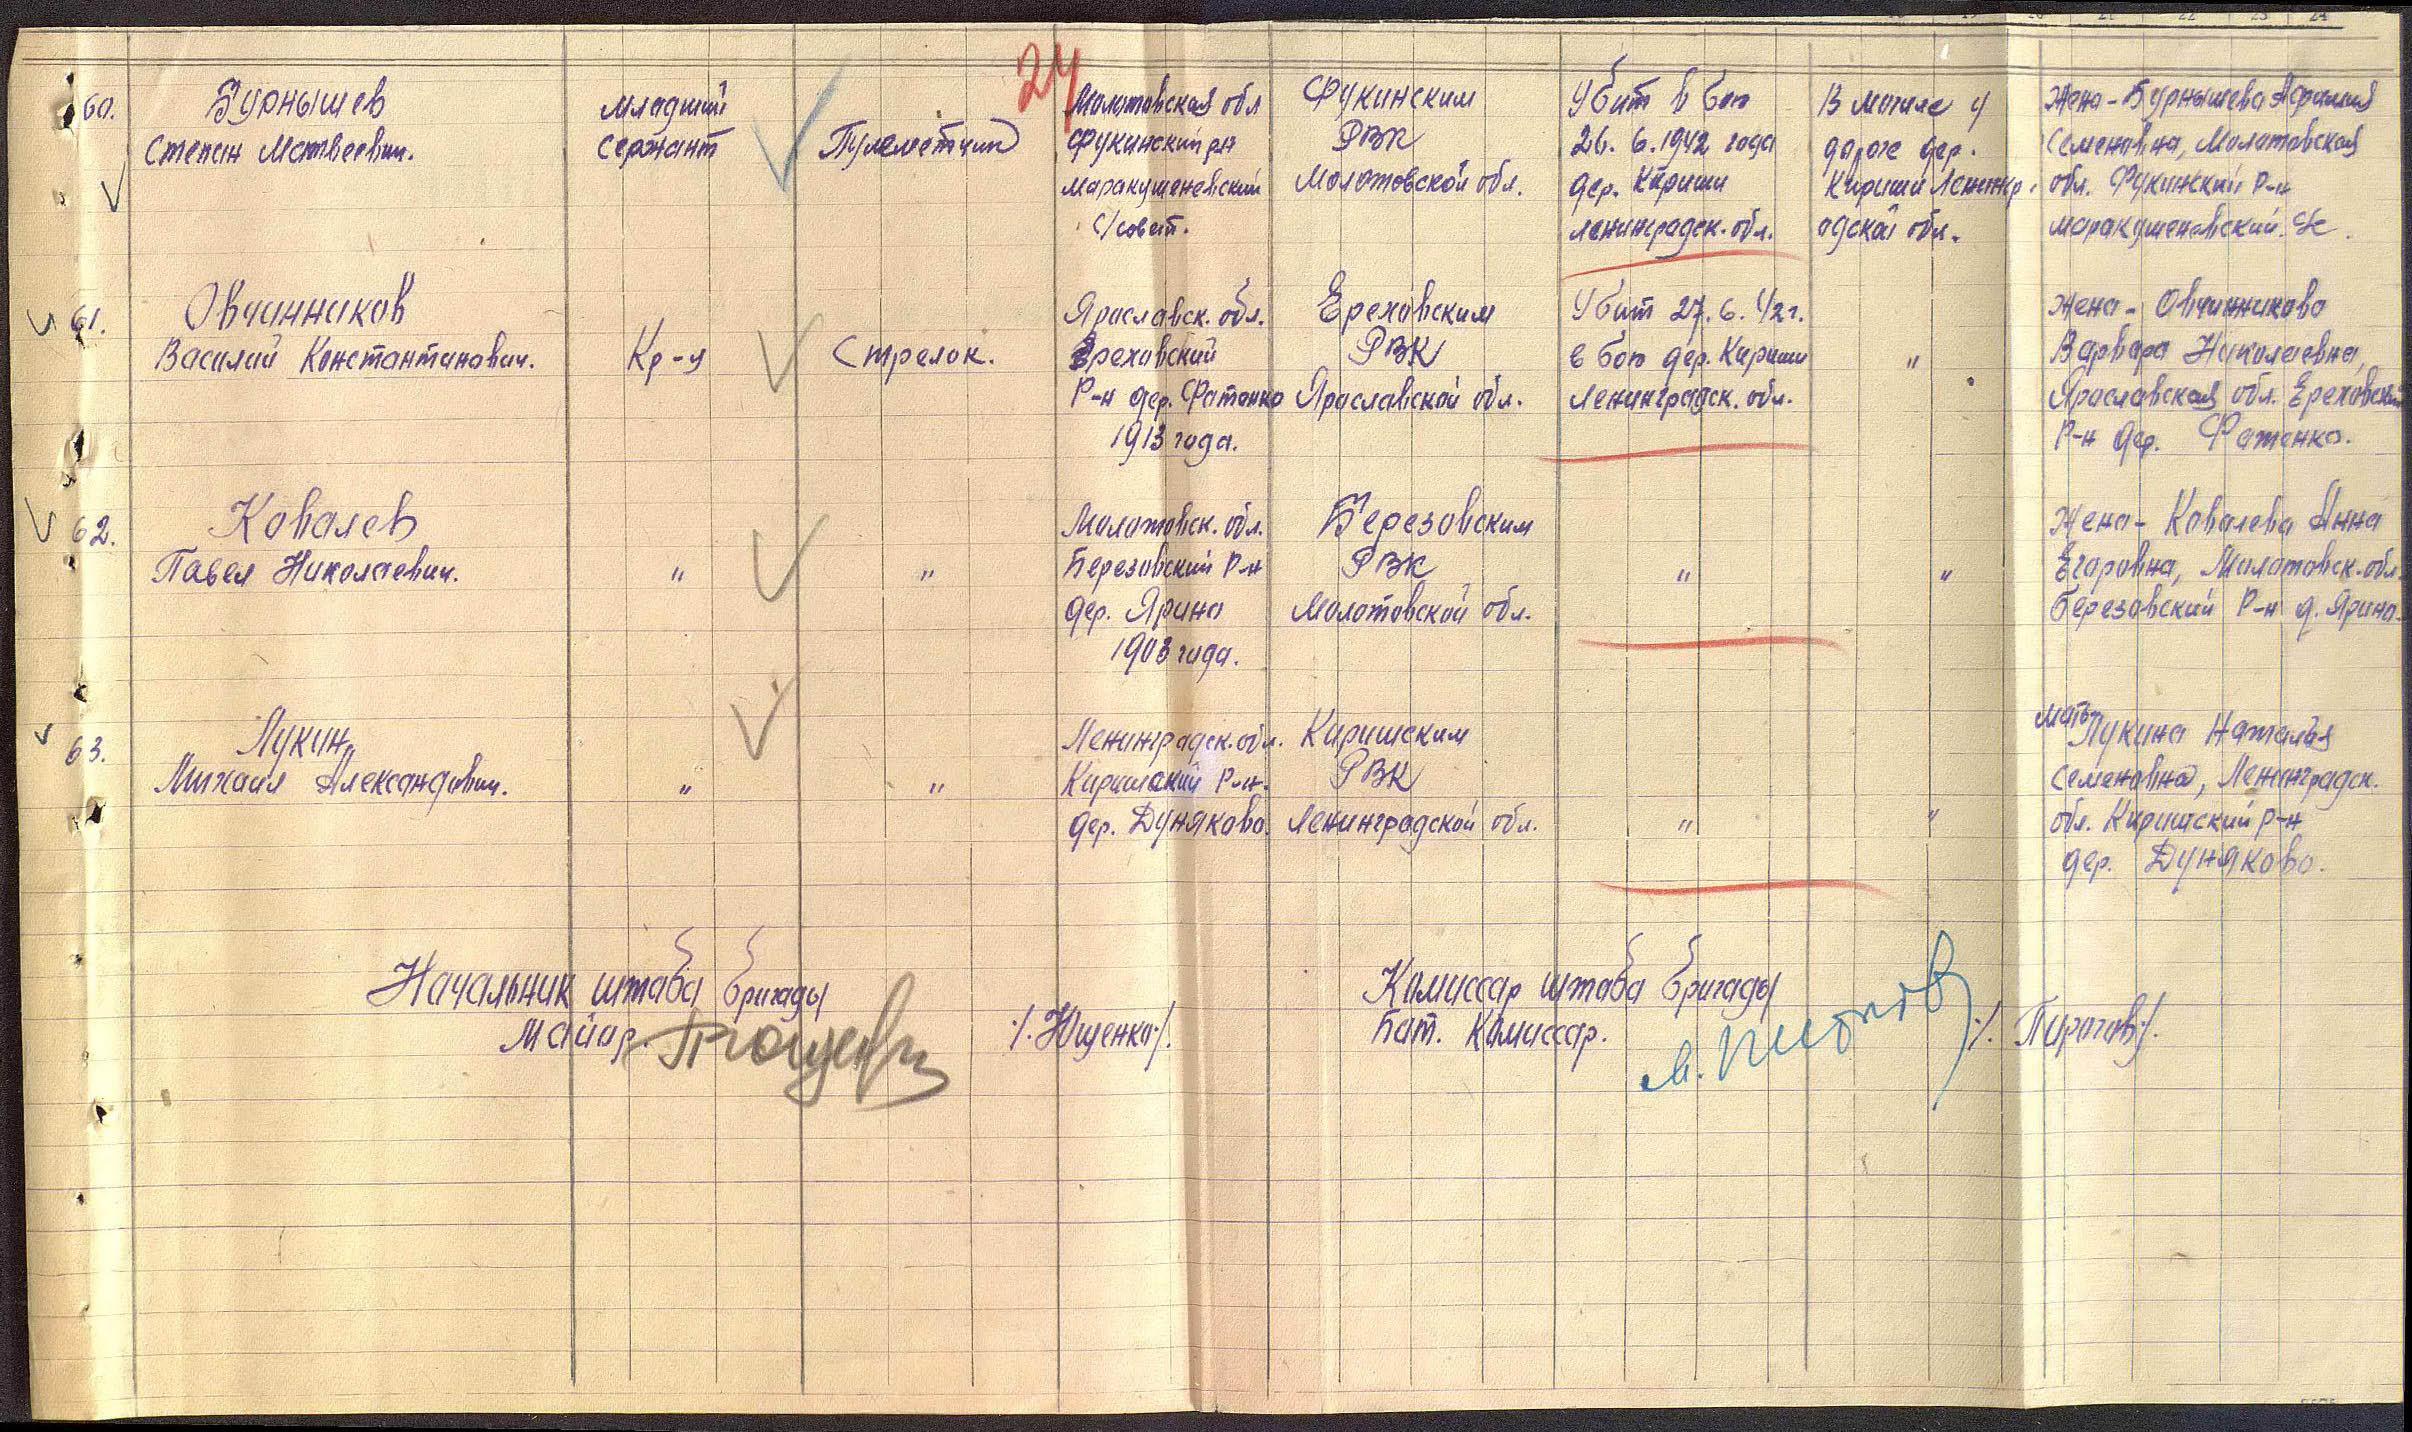 24
60.
Бурнышев
Степан Матвеевич.
младший
сержант
Пулеметчик
Молотовская обл
Фукинский рн
маракушеневский
с/совет.
Фукинским
РВК
Молотовской обл.
Убит в бою
26. 6. 1942 года
дер. Кириши
ленинградск. обл.
В могиле у
дороге дер.
Кириши Ленингр
адской обл.
Жена - Бурнышева
Семеновна, Молотовская
обл. Фукинский р-н
маракушеневский с/с.
61.
Овчинников
Василий Константинович.
Кр-ц
Стрелок.
Ярославск. обл.
Ереховский
Р-н дер. Фатенко
1913 года.
Ереховским
РВК
Ярославской обл.
Убит 27. 6. 42г.
в бою дер. Кириши
Ленинградск. обл.
"
Жена - Овчинникова
Варвара Николаевна,
Ярославская обл. Ереховский
Р-н дер. Фатенко.
62.
Ковалев
Павел Николаевич.
"
"
Молотовск. обл.
Березовский Р-н
дер. Ярина
1903 года.
Березовским
РВК
Молотовской обл.
"
"
Жена - Ковалева Анна
Егоровна, Молотовск. обл.
березовский Р-н д. Ярина.
63.
Лукин
Михаил Александович.
"
"
Ленинградск. обл.
Киришский Р-н.
дер. Дуняково.
Киришским
РВК
Ленинградской обл.
"
"
мать Лукина Наталья
Семеновна, Ленинградск.
обл. Киришский р-н
дер. Дуняково.
Начальник штаба бригады
Майор.
/. Ющенко/.
Комиссар штаба бригады
Бат. Комиссар.
/. Пирогов/.